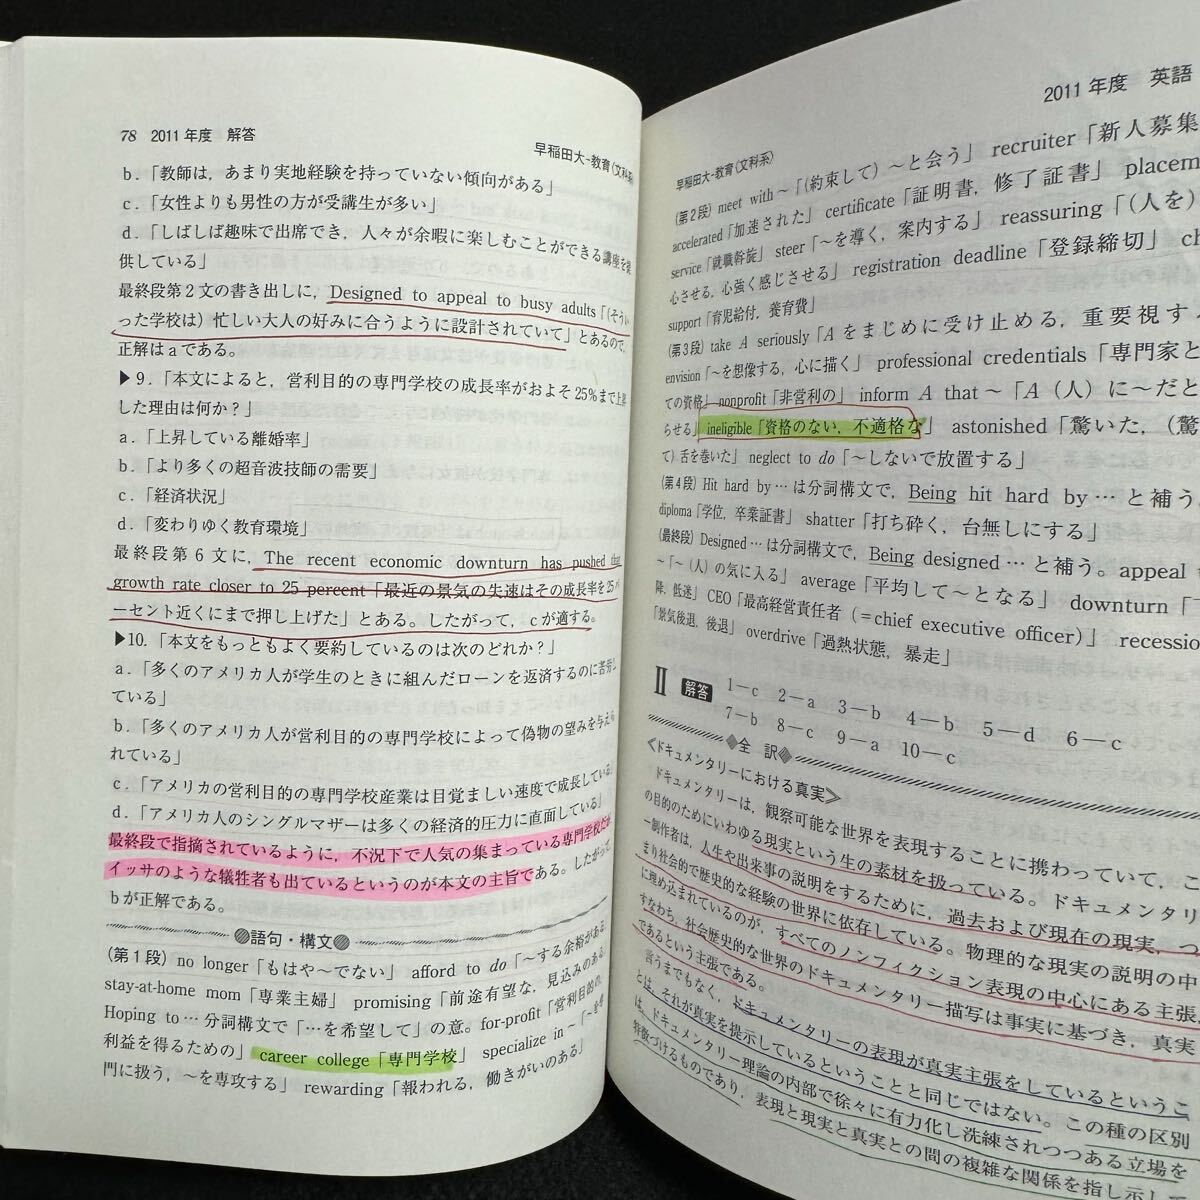 78 2011年度 解答
早稲田大-教育(文科系)
b.「教師は，あまり実地経験を持っていない傾向がある」
c.「女性よりも男性の方が受講生が多い」
d.「しばしば趣味で出席でき，人々が余暇に楽しむことができる講座を提
供している」
最終段第2文の書き出しに，Designed to appeal to busy adults「(そうい
った学校は) 忙しい大人の好みに合うように設計されていて」とあるので，
正解はaである。
▶9.「本文によると，営利目的の専門学校の成長率がおよそ25%まで上昇
した理由は何か？」
a.「上昇している離婚率」
b.「より多くの超音波技師の需要」
c.「経済状況」
d.「変わりゆく教育環境」
最終段第6文に，The recent economic downturn has pushed that
growth rate closer to 25 percent「最近の景気の失速はその成長率を25パ
ーセント近くにまで押し上げた」とある。したがって，cが適する。
▶10.「本文をもっともよく要約しているのは次のどれか？」
a.「多くのアメリカ人が学生のときに組んだローンを返済するのに苦労し
ている」
b.「多くのアメリカ人が営利目的の専門学校によって偽物の望みを与えら
れている」
c.「アメリカの営利目的の専門学校産業は目覚ましい速度で成長している」
d.「アメリカ人のシングルマザーは多くの経済的圧力に直面している」
最終段で指摘されているように，不況下で人気の集まっている専門学校だが，
イッサのような犠牲者も出ているというのが本文の主旨である。したがって，
bが正解である。
語句・構文
(第1段) no longer「もはや～でない」 afford to do「～する余裕がある」
stay-at-home mom「専業主婦」 promising「前途有望な，見込みのある」
Hoping to… 分詞構文で「…を希望して」の意。for-profit「営利目的の，
利益を得るための」 career college「専門学校」 specialize in ～「～を専
門に扱う，～を専攻する」 rewarding「報われる，働きがいのある」
2011年度 英語
早稲田大-教育(文科系)
(第2段) meet with ～「(約束して) ～と会う」 recruiter「新人募集
accelerated「加速された」 certificate「証明書，修了証書」 placem
service「就職幹旋」 steer「～を導く，案内する」 reassuring「(人を)
心させる，心強く感じさせる」 registration deadline「登録締切」 ch
support「育児給付，養育費」
(第3段) take A seriously「Aをまじめに受け止める，重要視す
envision「～を想像する，心に描く」 professional credentials「専門家と
ての資格」 nonprofit「非営利の」 inform A that ～「A (人) に～だと
らせる」 ineligible「資格のない，不適格な」 astonished「驚いた，(驚
て) 舌を巻いた」 neglect to do「～しないで放置する」
(第4段) Hit hard by…は分詞構文で，Being hit hard by…と補う
diploma「学位，卒業証書」 shatter「打ち砕く，台無しにする」
(最終段) Designed…は分詞構文で，Being designed…と補う。appeal t
～「～(人) の気に入る」 average「平均して～となる」 downturn「
降，低迷」 CEO「最高経営責任者 (=chief executive officer)」 recessio
「景気後退，後退」 overdrive「過熱状態，暴走」
Ⅱ 解答 1－c 2－a 3－b 4－b 5－d 6－c
7－b 8－c 9－a 10－c
全 訳
≪ドキュメンタリーにおける真実≫
ドキュメンタリーは，観察可能な世界を表現することに携わっていて，こ
の目的のためにいわゆる現実という生の素材を扱っている。ドキュメンタリ
ー制作者は，人生や出来事の説明をするために，過去および現在の現実，つ
まり社会的で歴史的な経験の世界に依存している。物理的な現実の説明の中
に埋め込まれているのが，すべてのノンフィクション表現の中心にある主張，
すなわち，社会歴史的な世界のドキュメンタリー描写は事実に基づき，真実
であるという主張である。
言うまでもなく，ドキュメンタリーの表現が真実主張をしているというこ
とは，それが真実を提示しているということと同じではない。この種の区別
は，ドキュメンタリー理論の内部で徐々に有力化し洗練されつつある立場を
特徴づけるものであり，表現と現実と真実との間の複雑な関係を指し示し